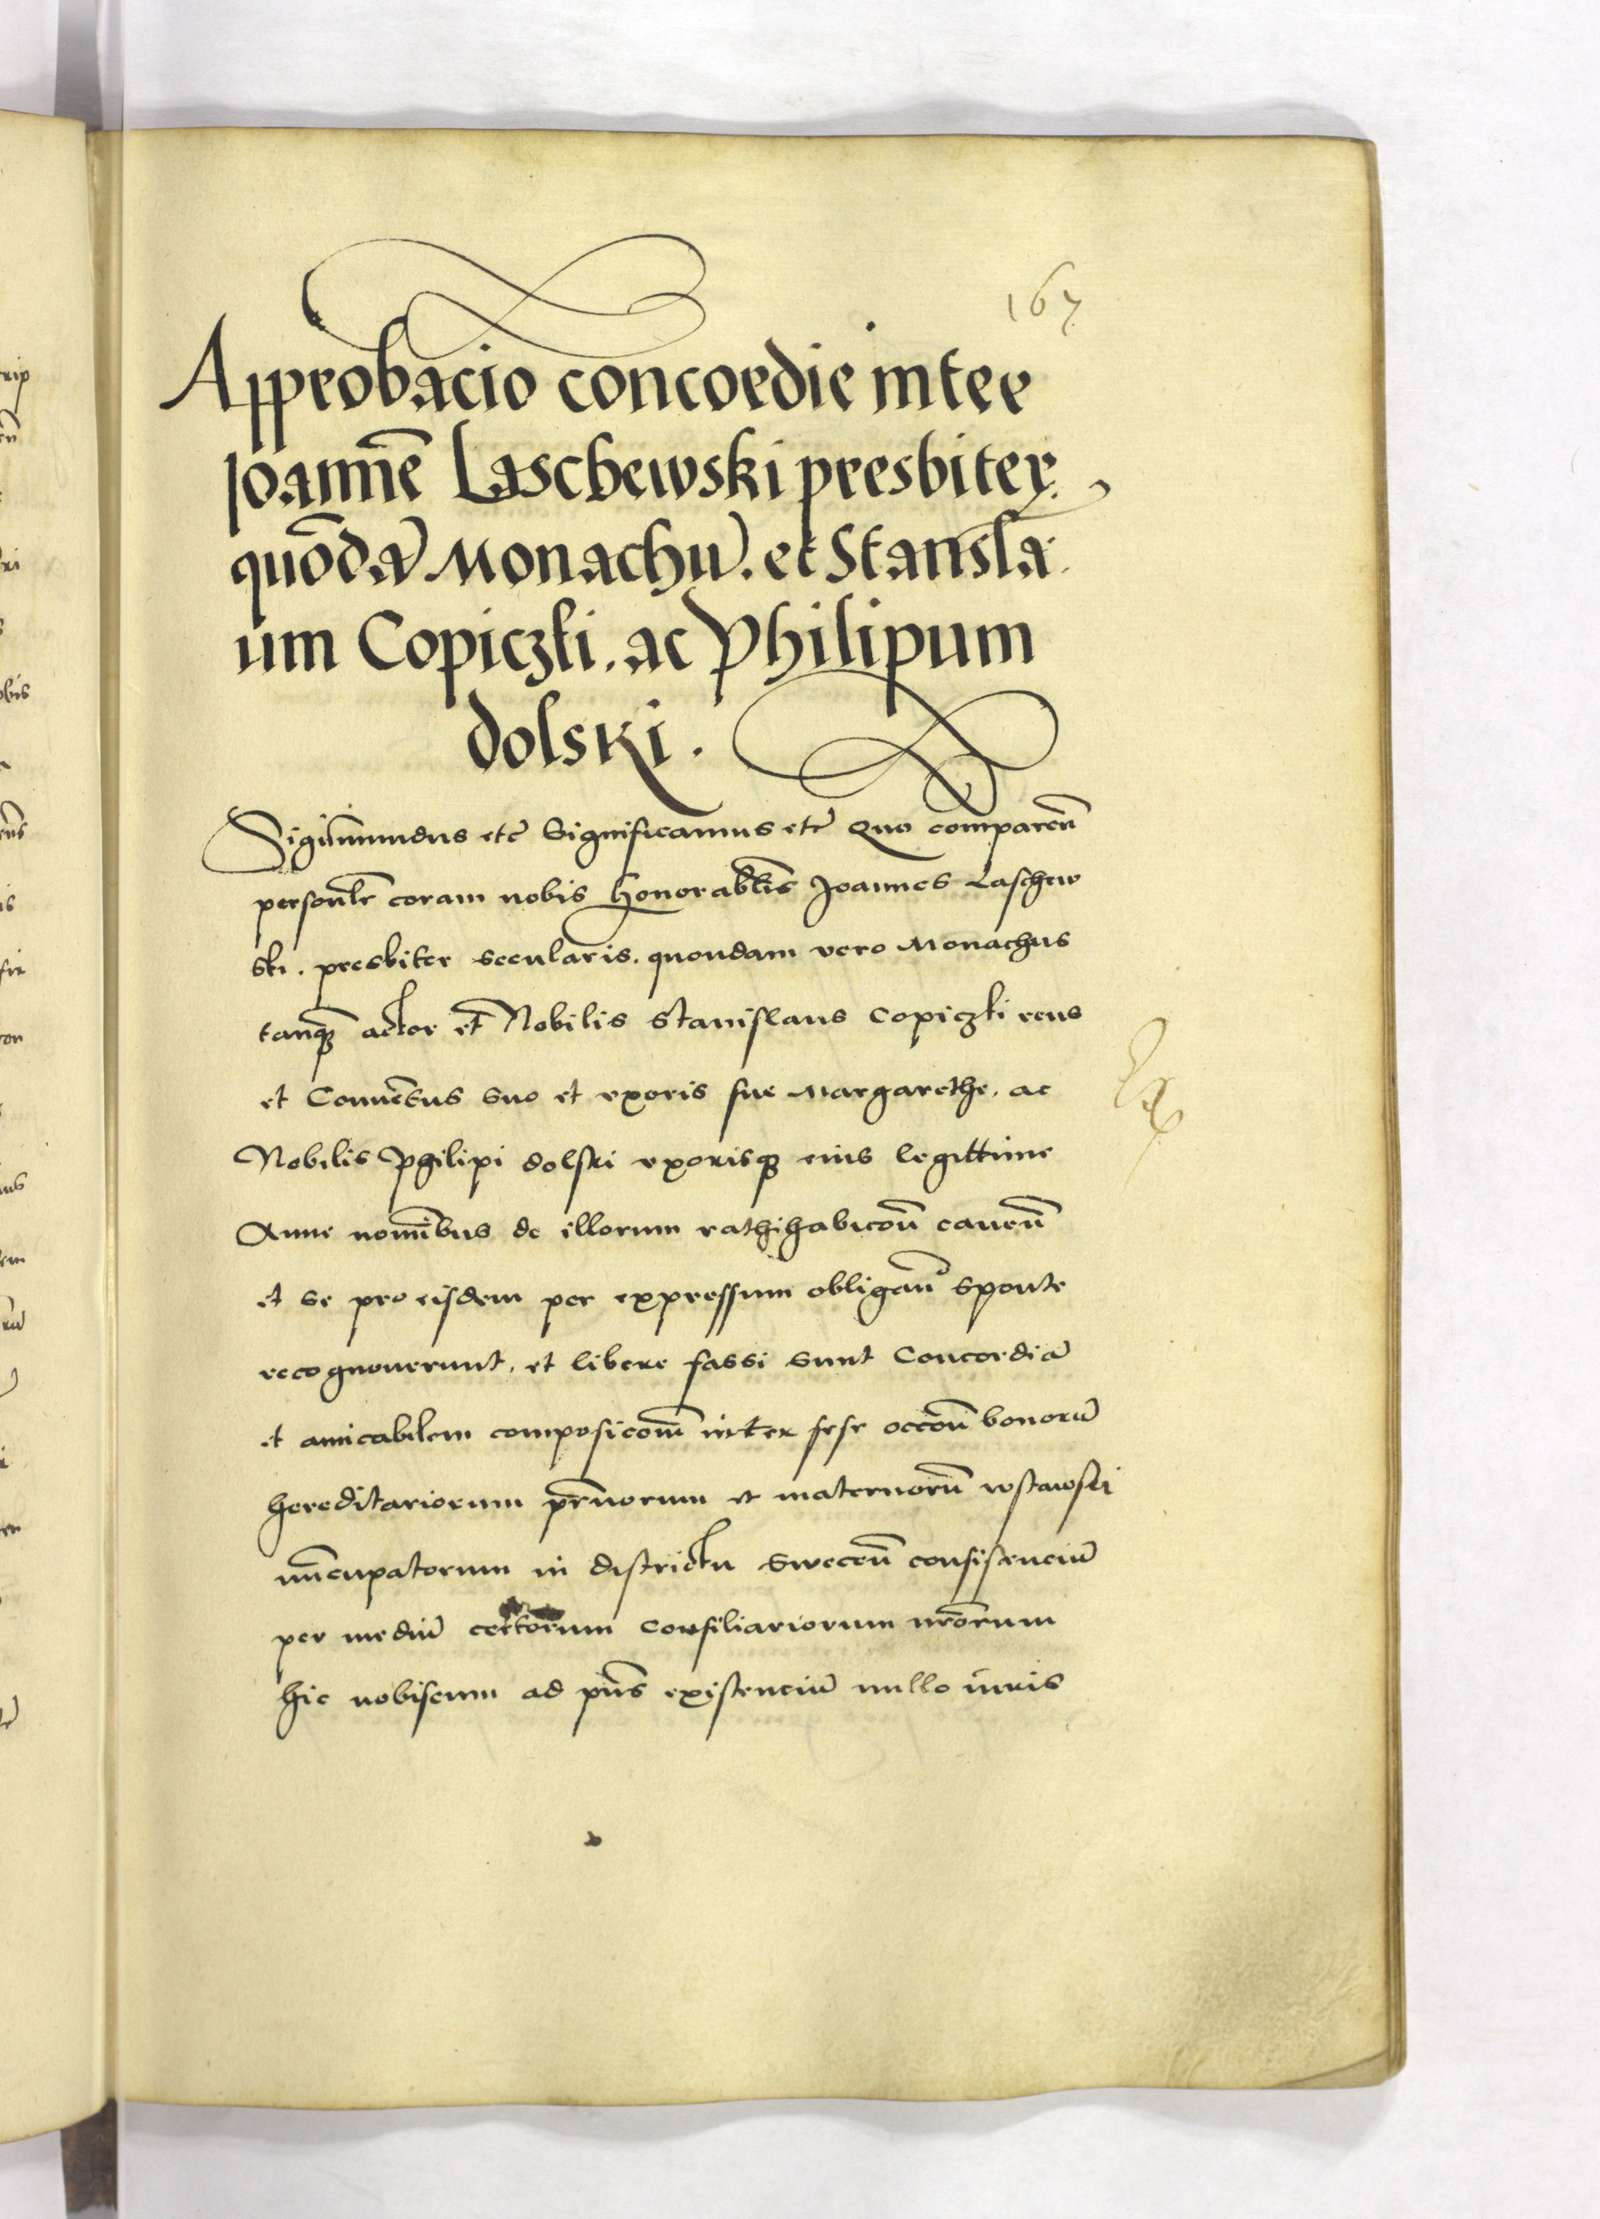 167
Approbacio concordie inter
Joannē Laschewski presbiter
quōdā Monachū. et Stanisla
um Copiczki. ac Philipum
dolski.
Sigismundus etc̄ Significamus etc̄ Quo comparen̄
personlr̄ coram nobis honorabl̄is Joannes Laschew
ski. presbiter secularis. quondam vero Monachus
tanqȝ actor et Nobilis Stanislaus Copiczki reus
et Conuētus suo et vxoris sue Margarethe. ac
Nobilis Philipi dolski vxorisqȝ eius legittime
Anne nomībus de illorum rathihabicoū cauen̄
et se pro eisdem per expressum obligan̄ sponte
recognouerunt. et libere fassi sunt Concordiā
et amicabilem composicoēm inter sese occoē bonorū
hereditariorum pr̄norum et maternorū
nūcupatorum in districtu Swecen̄ consistenciū
per mediū certorum Consiliariorum nr̄orum
hic nobiscum ad pn̄s existenciū nullo iuris